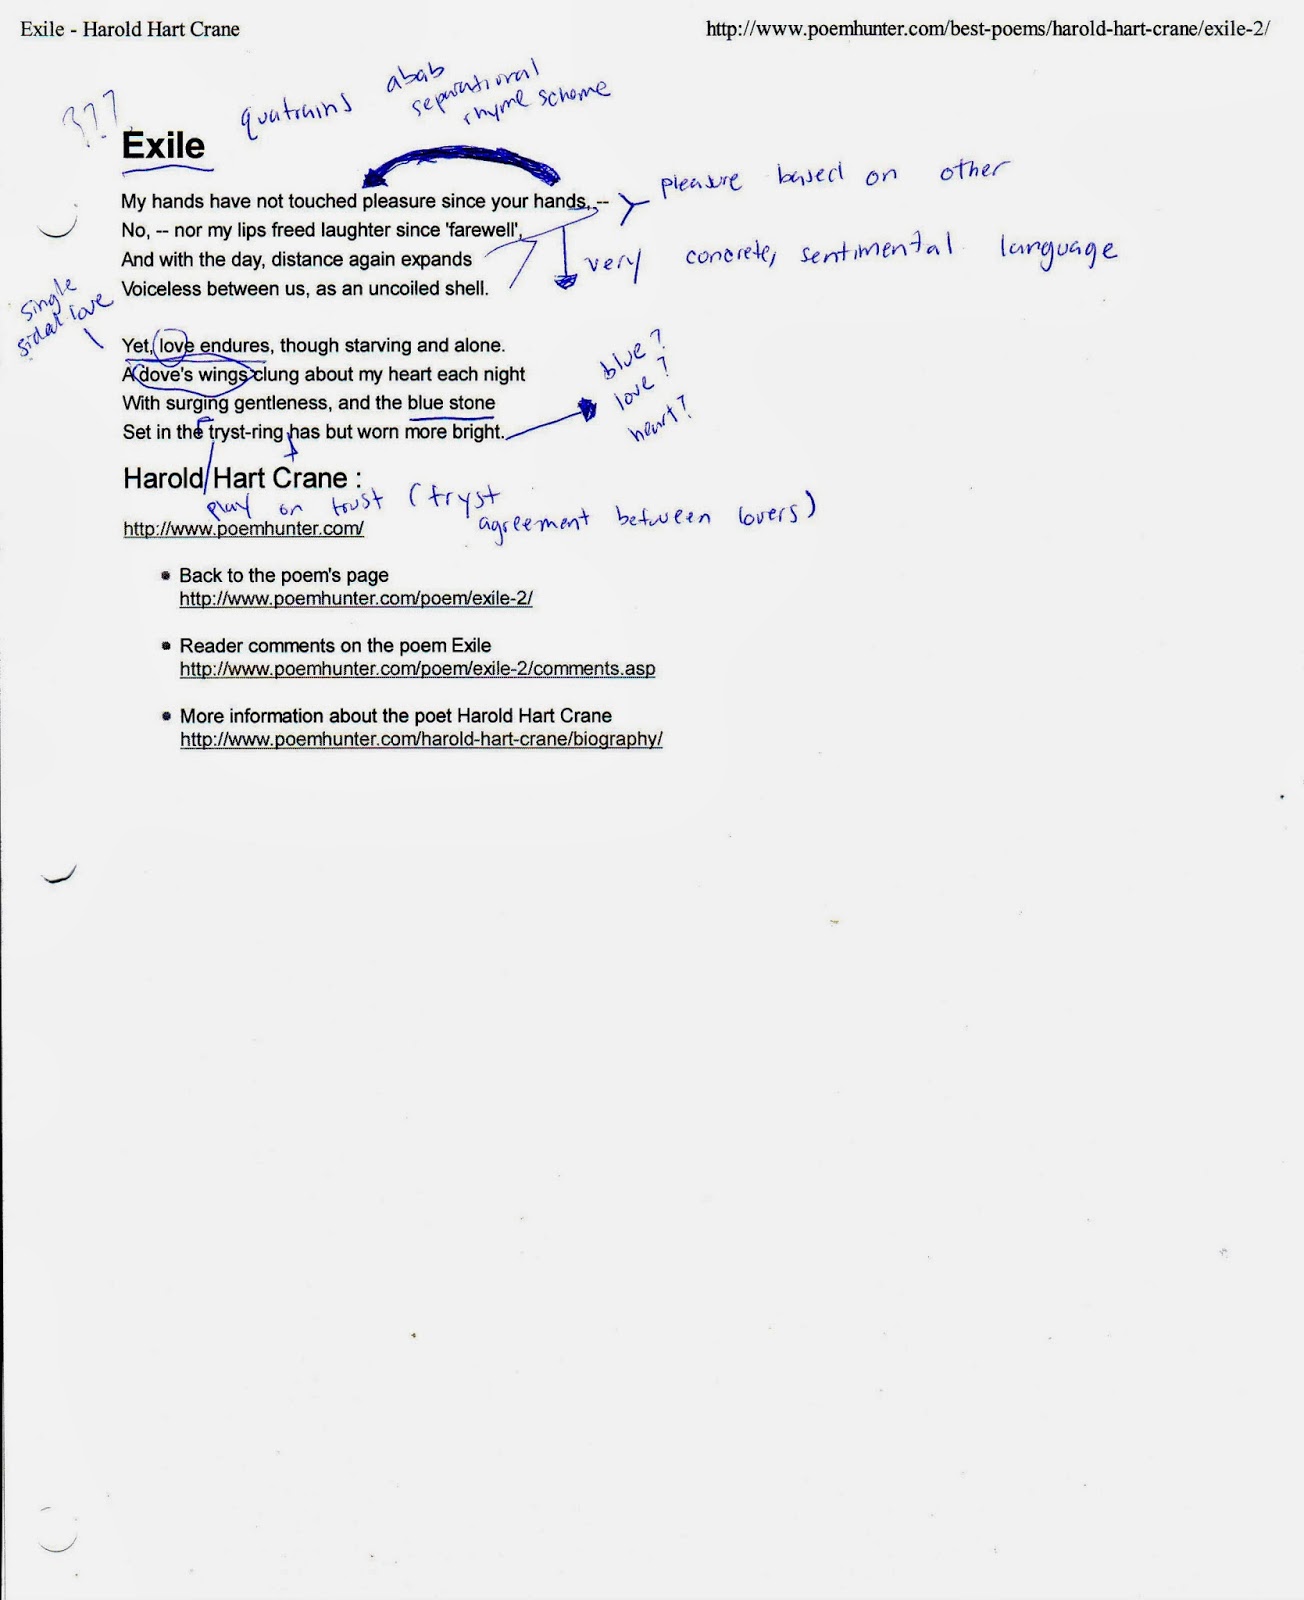 Exile - Harold Hart Crane
http://www.poemhunter.com/best-poems/harold-hart-crane/exile-2/
???
quatrains
abab
separational
rhyme scheme
Exile
My hands have not touched pleasure since your hands, --
pleasure based on other
No, -- nor my lips freed laughter since 'farewell',
And with the day, distance again expands
very concrete, sentimental language
Voiceless between us, as an uncoiled shell.
single
sided love
Yet, love endures, though starving and alone.
A dove's wings clung about my heart each night
With surging gentleness, and the blue stone
Set in the tryst-ring has but worn more bright.
blue?
love?
heart?
Harold Hart Crane :
play on trust (tryst
agreement between lovers)
http://www.poemhunter.com/
• Back to the poem's page
http://www.poemhunter.com/poem/exile-2/
• Reader comments on the poem Exile
http://www.poemhunter.com/poem/exile-2/comments.asp
• More information about the poet Harold Hart Crane
http://www.poemhunter.com/harold-hart-crane/biography/